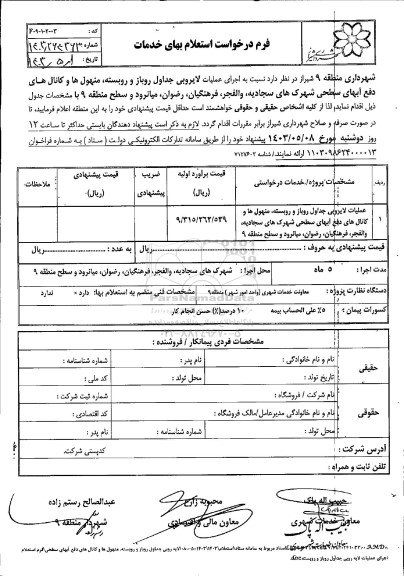 فرم درخواست استعلام بهای خدمات
کد :
شماره
تاریخ :
شهرداری منطقه ۹ شیراز در نظر دارد نسبت به اجرای عملیات لایروبی جداول روباز و روبسته، منهول ها و کانال های
دفع آبهای سطحی شهرک های سجادیه، والفجر، فرهنگیان، رضوان، میانرود و سطح منطقه ۹ با مشخصات جدول
ذیل اقدام نماید، لذا از کلیه اشخاص حقیقی و حقوقی خواهشمند است حداقل قیمت پیشنهادی خود را به این منطقه اعلام فرمایید، تا
در صورت صرفه و صلاح شهرداری شیراز برابر مقررات اقدام گردد. لازم به ذکر است پیشنهاد دهندگان بایستی حداکثر تا ساعت ۱۲
روز دوشنبه مورخ ۱۴۰۳/۰۵/۰۸ پیشنهاد خود را از طریق سامانه تدارکات الکترونیکی دولت (ستاد) به شماره فراخوان
ارائه نمایند.
ردیف
مشخصات پروژه/خدمات درخواستی
قیمت برآورد اولیه (ریال)
ضریب پیشنهادی
قیمت پیشنهادی (ریال)
ملاحظات
۱
عملیات لایروبی جداول روباز و روبسته، منهول ها و
کانال های دفع آبهای سطحی شهرک های سجادیه،
والفجر، فرهنگیان، رضوان، میانرود و سطح منطقه ۹
۹/۳۱۵/۲۶۲/۵۳۹
قیمت پیشنهادی به حروف : ریال
به عدد : ریال
مدت اجرا : ۵ ماه
محل اجرا : شهرک های سجادیه، والفجر، فرهنگیان، رضوان، میانرود و سطح منطقه ۹
دستگاه نظارت پروژه : معاونت خدمات شهری (واحد امور شهر) منطقه۹
مشخصات فنی منضم به استعلام بها: دارد ندارد
کسورات پیمان : ۵٪ علی الحساب بیمه
۱۰ درصد(٪) حسن انجام کار
مشخصات فردی پیمانکار / فروشنده :
حقیقی
نام و نام خانوادگی :
نام پدر :
شماره شناسنامه :
تاریخ تولد :
محل تولد :
کد ملی :
حقوقی
نام شرکت / فروشگاه :
شماره ثبت شرکت :
نام و نام خانوادگی مدیرعامل/مالک فروشگاه :
کد اقتصادی :
محل تولد :
شماره شناسنامه :
نام پدر :
آدرس شرکت :
کدپستی شرکت:
تلفن ثابت و همراه :
حبیب اله پاک
معاون خدمات شهری
محبوبه زارع
معاون مالی و اقتصادی
عبدالصالح رستم زاده
شهردار منطقه ۹